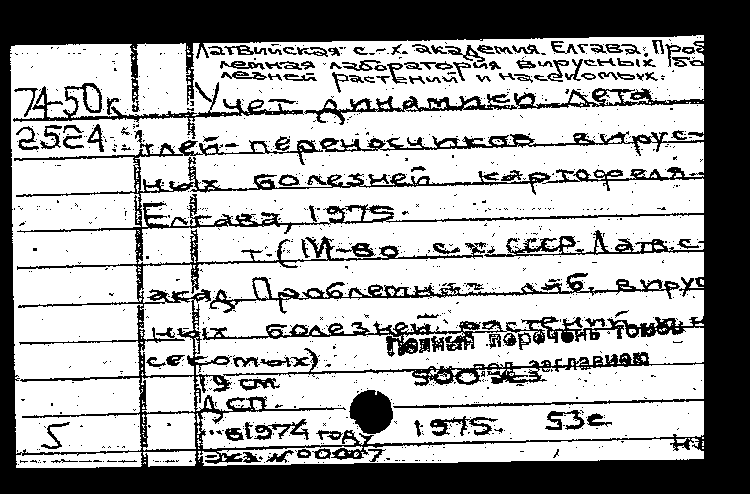 Латвийская с.-х. академия. Елгава. Проб
лемная лаборатория вирусных бо
лезней растений и насекомых.
74-50к Учет динамики лета
2524 тлей-переносчиков вирус-
ных болезней картофеля.
Елгава, 1975.
т. (М-во с.х. СССР. Латв. с-
акад. Проблемная лаб. вирус
ных болезней растений и н
Полный перечень томов
секомых).
см. под заглавием
19 см 500 экз
ДСП.
5 ...в 1974 году. 1975. 53с
Экз. № 00007.